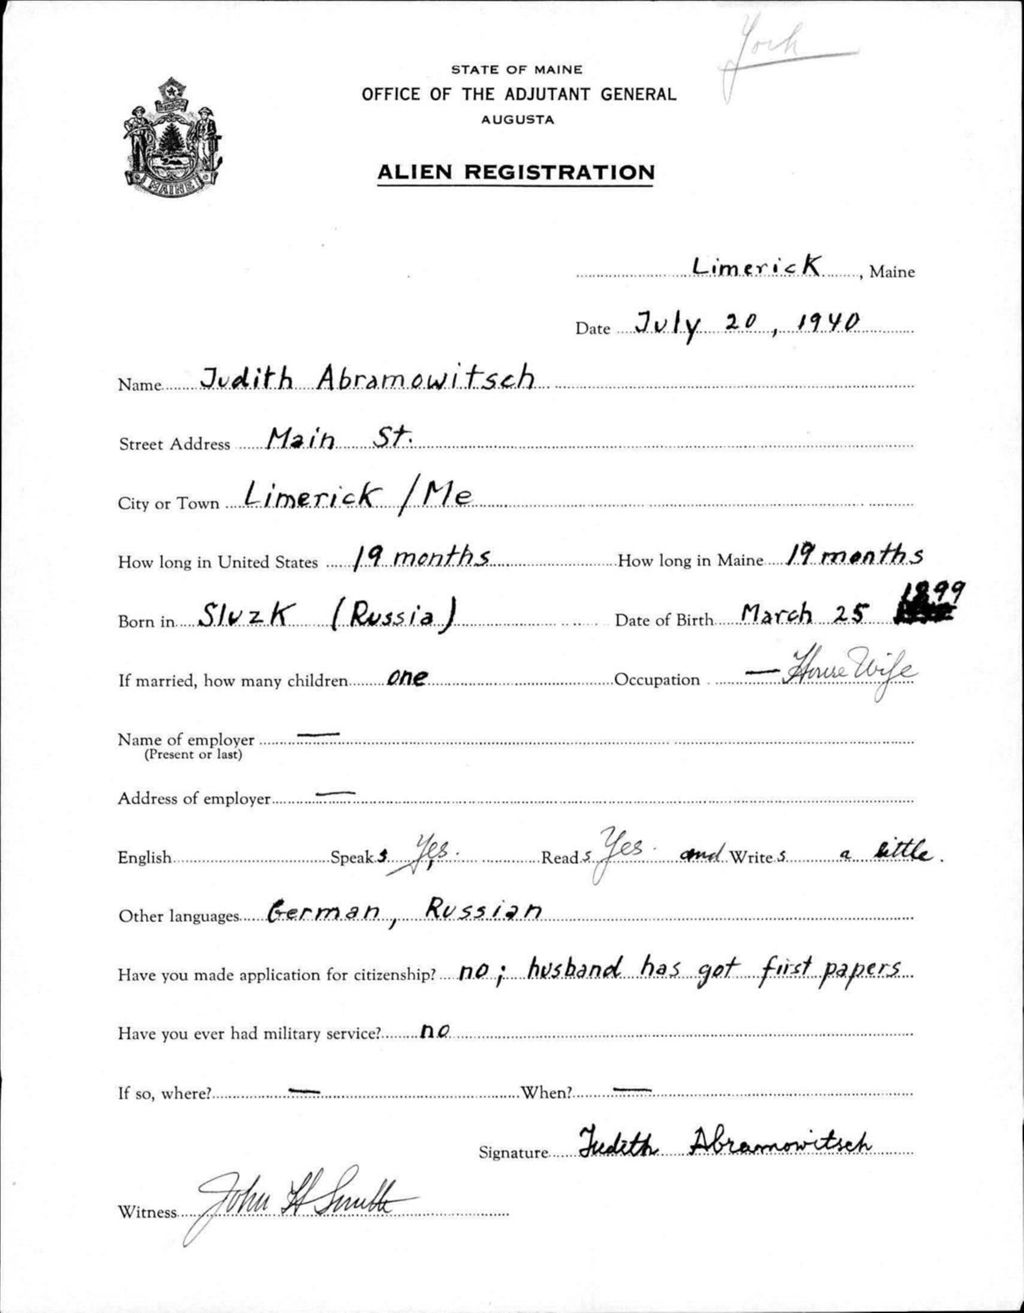 York
STATE OF MAINE
OFFICE OF THE ADJUTANT GENERAL
AUGUSTA
ALIEN REGISTRATION
MAINE
Limerick, Maine
Date July 20, 1940
Name Judith Abramowitsch
Street Address Main St.
City or Town Limerick / Me
How long in United States 19 months How long in Maine 19 months
Born in Sluzk (Russia) Date of Birth March 25 1899
If married, how many children one Occupation — House Wife
Name of employer —
(Present or last)
Address of employer —
English Speaks Yes. Reads Yes. and Writes a little.
Other languages German, Russian
Have you made application for citizenship? no; husband has got first papers
Have you ever had military service? no
If so, where? — When? —
Signature Judith Abramowitsch
Witness John H Smith